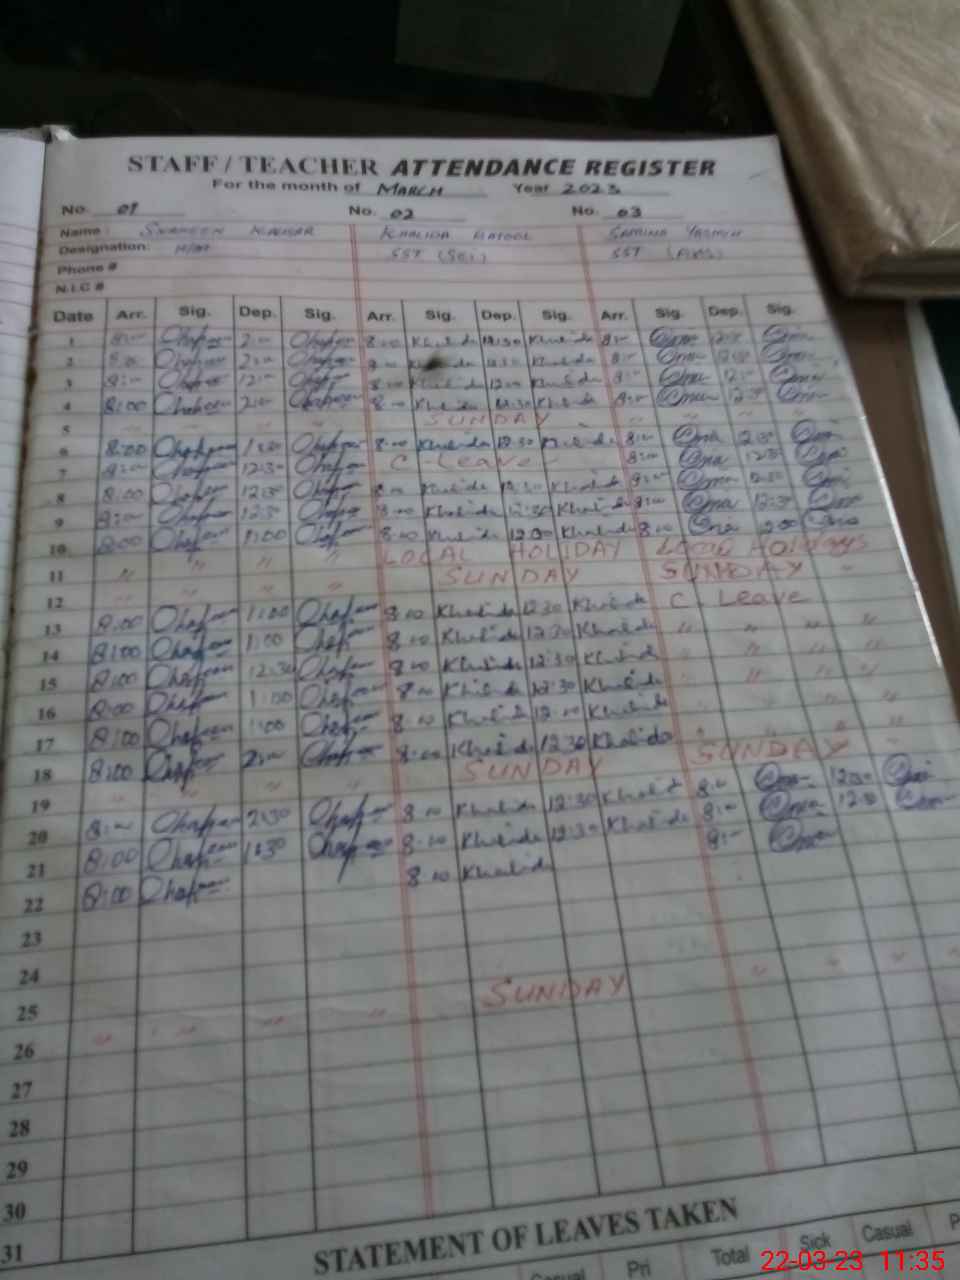 STAFF / TEACHER ATTENDANCE REGISTER
For the month of MARCH Year 2023
No. 01 No. 02 No. 03
Name: SHAHEEN KAUSAR KHALIDA BATOOL SAMINA YASMIN
Designation: H/M SST (Sci) SST (Arts)
Phone #
N.I.C #
Date Arr. Sig. Dep. Sig. Arr. Sig. Dep. Sig. Arr. Sig. Dep. Sig.
1 8:00 2:00 8:00 Khalida 12:30 Khalida 8:00 12:30
2 8:00 2:00 8:00 Khalida 12:30 Khalida 8:00 12:30
3 8:00 12:00 8:00 Khalida 12:00 Khalida 8:00 12:00
4 8:00 2:00 8:00 Khalida 12:30 Khalida 8:00 12:30
5 " " " " SUNDAY " " "
6 8:00 1:30 8:00 Khalida 12:30 Khalida 8:00 12:30
7 8:00 12:30 C-Leave 8:00 12:30
8 8:00 12:30 8:00 Khalida 12:30 Khalida 8:00 12:30
9 8:00 12:30 8:00 Khalida 12:30 Khalida 8:00 12:30
10 8:00 1:00 8:00 Khalida 12:00 Khalida 8:00 2:00
11 " " " " LOCAL HOLIDAY Local Holidays
12 " " " " SUNDAY SUNDAY "
13 8:00 1:00 8:00 Khalida 12:30 Khalida C. Leave
14 8:00 1:00 8:00 Khalida 12:30 Khalida " " " "
15 8:00 12:30 8:00 Khalida 12:30 Khalida " " " "
16 8:00 1:00 8:00 Khalida 12:30 Khalida " " " "
17 8:00 1:00 8:00 Khalida 12:00 Khalida " " " "
18 8:00 2:00 8:00 Khalida 12:30 Khalida " " " "
19 " " " " SUNDAY SUNDAY "
20 8:00 2:30 8:00 Khalida 12:30 Khalida 8:00 12:30
21 8:00 1:30 8:00 Khalida 12:30 Khalida 8:00 12:30
22 8:00 8:00 Khalida 8:00
23
24
25
26 " " " " SUNDAY " " " "
27
28
29
30
31
STATEMENT OF LEAVES TAKEN
Casual Pri Total Sick Casual
22-03-23 11:35